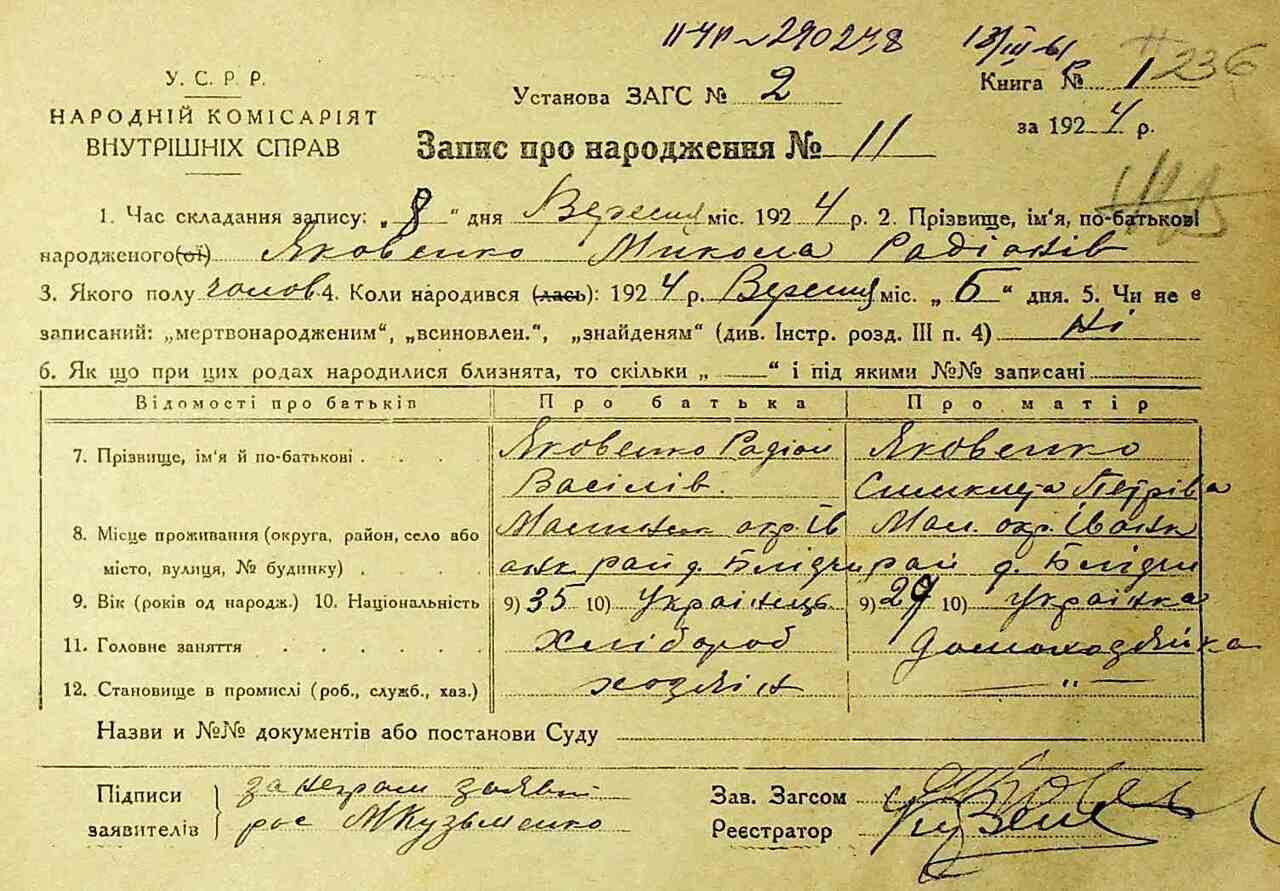 ІІ-ЧП № 290278 13/III-61
У. С. Р. Р.
НАРОДНІЙ КОМІСАРІЯТ
ВНУТРІШНІХ СПРАВ
Установа ЗАГС № 2
Книга № 1 236
за 1924 р.
Запис про народження № 11
1. Час складання запису: „8" дня Вересня міс. 1924 р. 2. Прізвище, ім'я, по-батькові
народженого(ої) Яковенко Микола Радіонів
3. Якого полу чолов 4. Коли народився (лась): 1924 р. Вересня міс. „6" дня. 5. Чи не є
записаний: „мертвонародженим", „всиновлен.", „знайденям" (див. Інстр. розд. III п. 4) Ні
6. Як що при цих родах народилися близнята, то скільки „ " і під якими №№ записані
Відомості про батьків Про батька Про матір
7. Прізвище, ім'я й по-батькові . . . Яковенко Радіон Яковенко
Васілів. Петрівна
8. Місце проживання (округа, район, село або Малинськ окр. Ів Мал. окр. Іванк
місто, вулиця, № будинку) . . . . анк рай д.Блідчи рай д. Блідчи
9. Вік (років од народж.) 10. Національність 9) 35 10) Українець 9) 29 10) Українка
11. Головне заняття . . . . . . Хлібороб Домохозяйка
12. Становище в промислі (роб., служб., хаз.) хозяін — " —
Назви и №№ документів або постанови Суду
Підписи за неграм заявні
заявителів рос МКузьменко
Зав. Загсом
Реєстратор